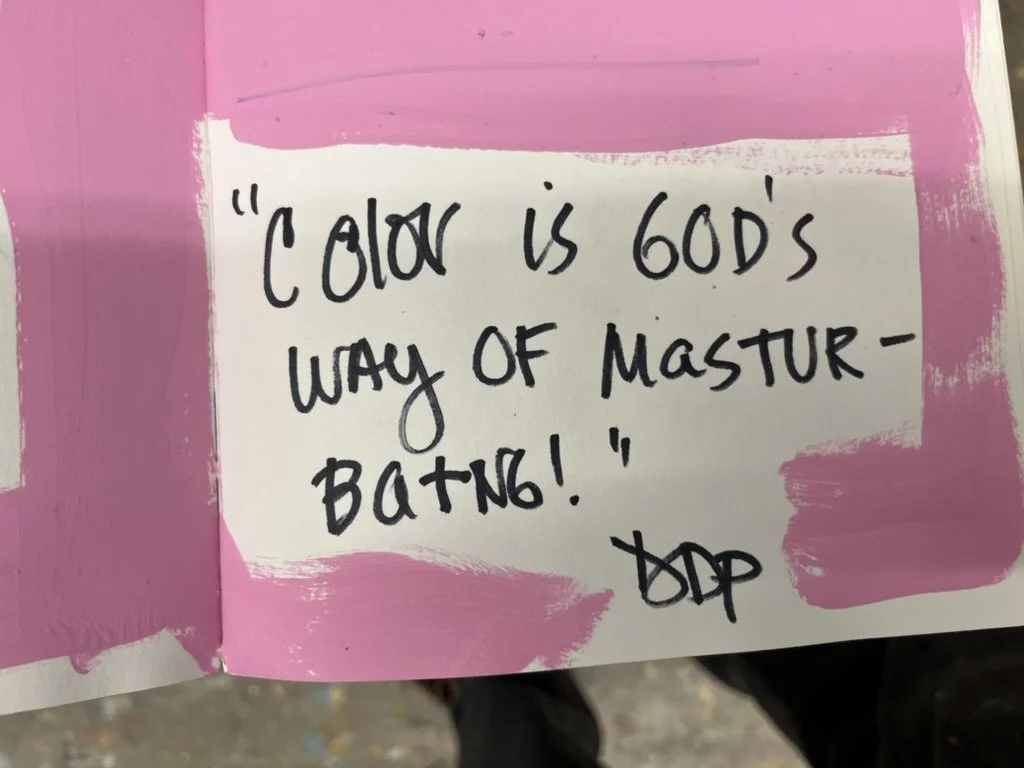 "Color is GOD's
WAY OF MASTUR-
BATNG!"
DDP